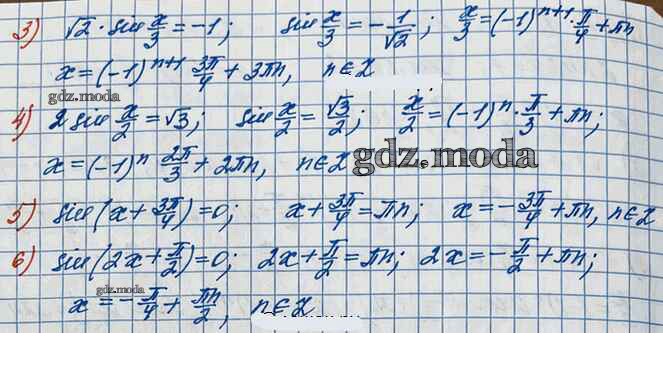 3) √2 · sin x/3 = -1; sin x/3 = - 1/√2; x/3 = (-1)ⁿ⁺¹ · π/4 + πn
x = (-1)ⁿ⁺¹ 3π/4 + 3πn, n∈Z
gdz.moda
4) 2 sin x/2 = √3; sin x/2 = √3/2; x/2 = (-1)ⁿ · π/3 + πn;
x = (-1)ⁿ 2π/3 + 2πn, n∈Z
gdz.moda
5) sin(x + 3π/4) = 0; x + 3π/4 = πn; x = - 3π/4 + πn, n∈Z
6) sin(2x + π/2) = 0; 2x + π/2 = πn; 2x = - π/2 + πn;
gdz.moda
x = - π/4 + πn/2, n∈Z